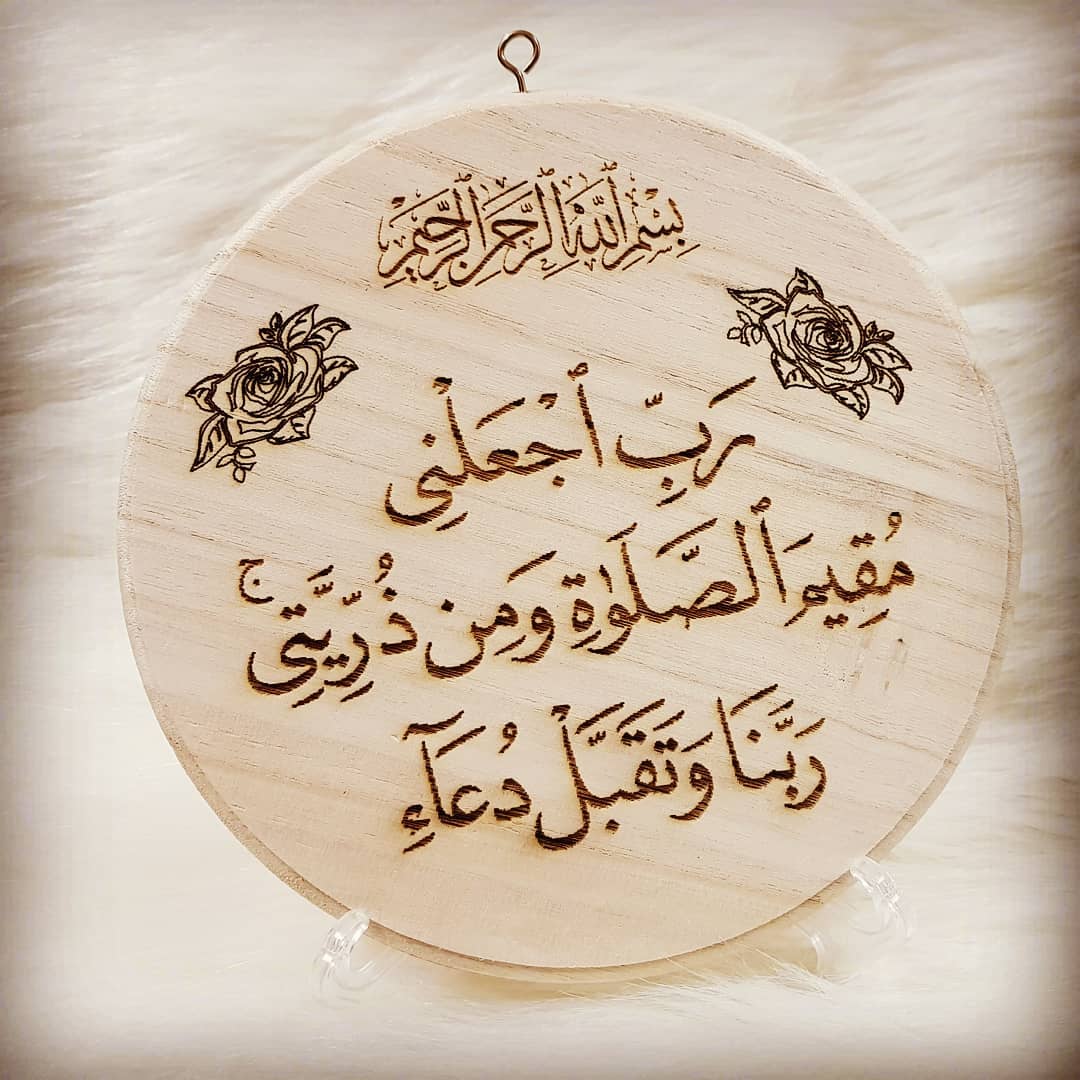 بِسْمِ ٱللَّهِ ٱلرَّحْمَٰنِ ٱلرَّحِيمِ
رَبِّ ٱجْعَلْنِى
مُقِيمَ ٱلصَّلَوٰةِ وَمِن ذُرِّيَّتِى ۚ
رَبَّنَا وَتَقَبَّلْ دُعَآءِ